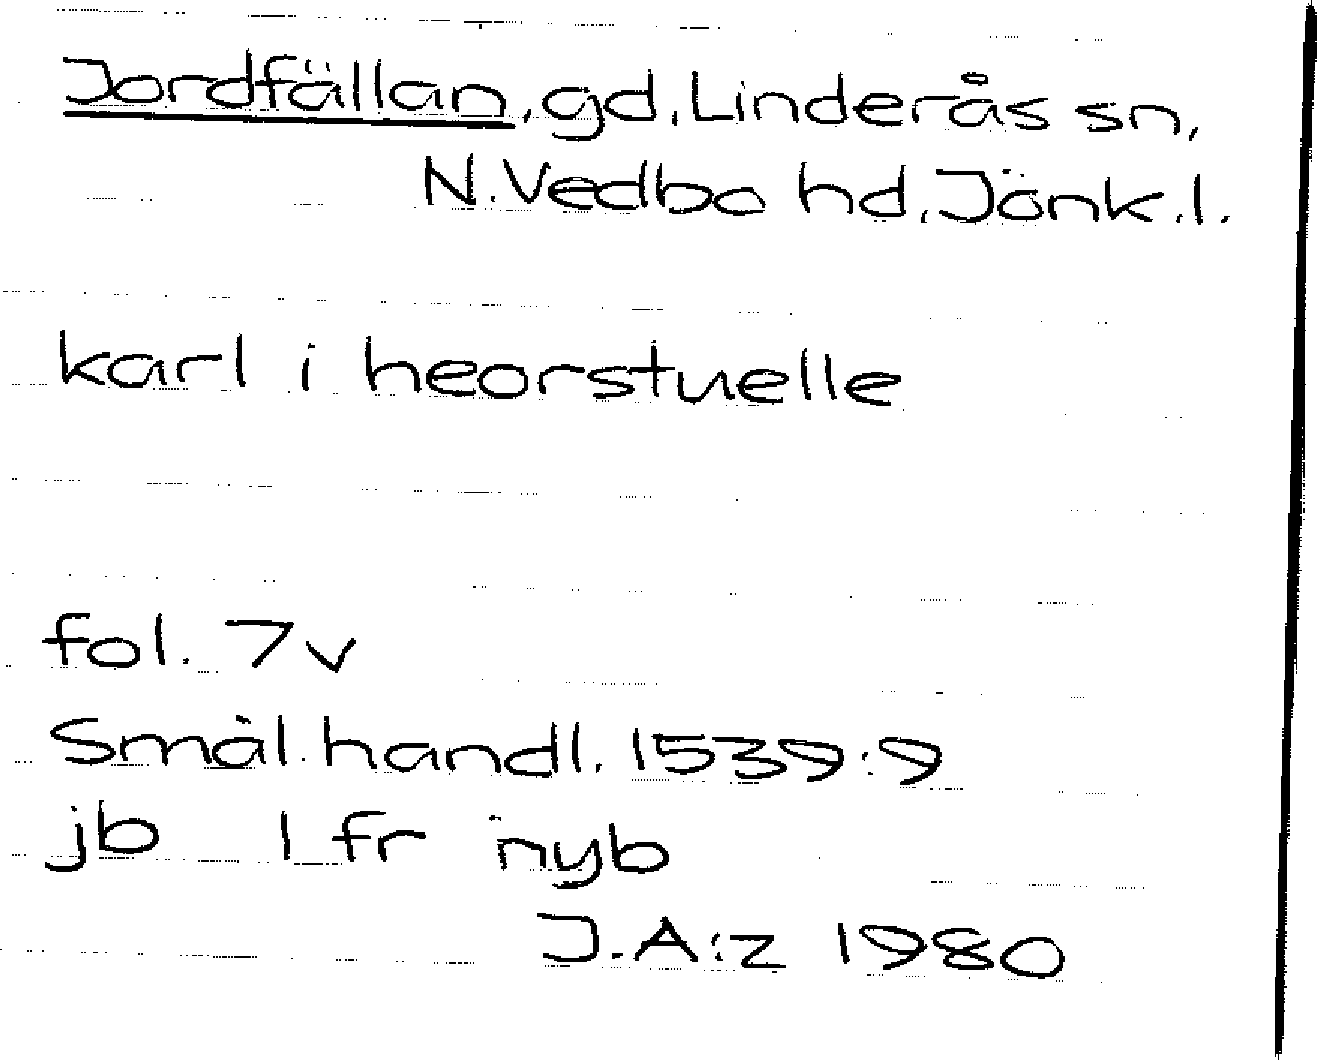 Jordfällan, gd, Linderås sn,
N. Vedbo hd, Jönk. l.
karl i heorstuelle
fol. 7v
Smål. handl. 1539:9
jb 1 fr nyb
J.A:z 1980